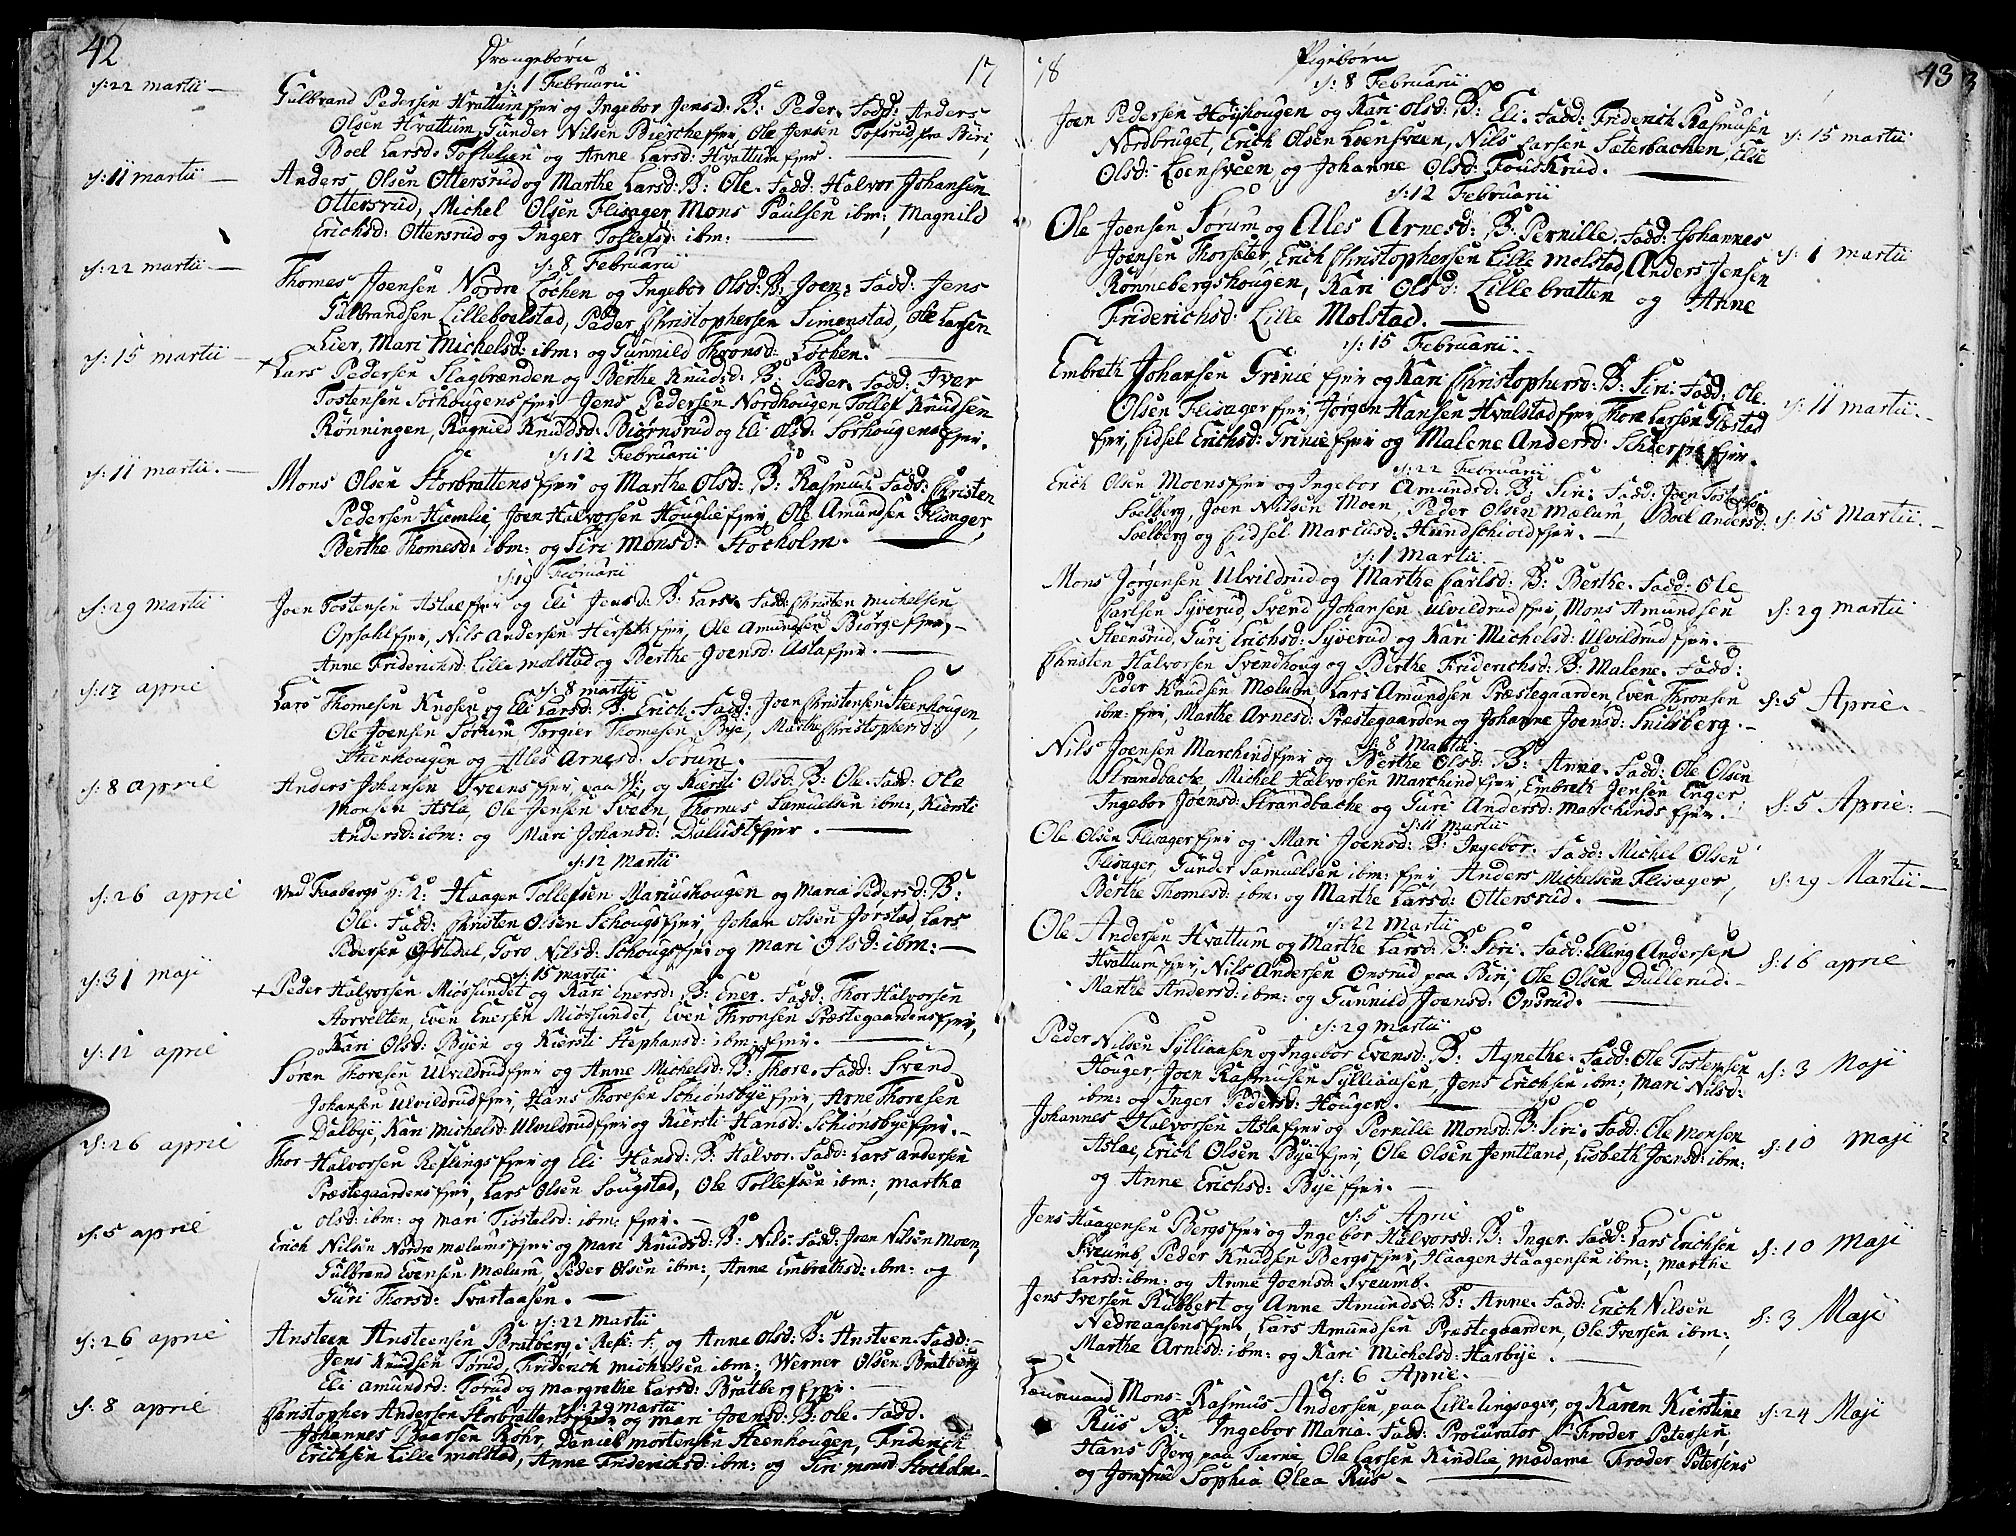 42
Drængebørn
17
d: 1 Februarii
d: 22 martii —
Gulbrand Pedersen Hvattumfjer og Ingebor Jensd: B: Peder. Fadd: Anders
Olsen Hvattum, Gunder Nilsen Bierchefjer, Ole Jensen Tofsrud fra Biri,
Boel Larsd: Toftelsen og Anne Larsd: Hvattumfjer.
d: 11 martii —
Anders Olsen Ottersrud og Marthe Larsd: B: Ole. Fadd: Halvor Johansen
Ottersrud, Michel Olsen Flisager, Mons Paulsen ibm:, Magnild
Erichsd: Ottersrud og Inger Tollefsd: ibm:
d: 8 Februarii
d: 22 martii —
Thomes Joensen Nordre Lochen og Ingebor Olsd: B: Joen. Fadd: Jens
Gulbrandsen Lilleboelstad, Peder Christophersen Simenstad, Ole Larsen
Lier, Mari Michelsd: ibm: og Gunnild Thronsd: Lochen.
d: 15 martii —
+ Lars Pedersen Slagbrænden og Berthe Knudsd: B: Peder. Fadd: Iver
Tostensen Sørhougensfjer, Jens Pedersen Nordhougen, Tollef Knudsen
Rønningen, Ragnild Knudsd: Biørnsrud og Eli Olsd: Sørhougensfjer.
d: 12 Februarii
d: 11 martii. —
Mons Olsen Storbrattensfjer og Marthe Olsd: B: Rasmus. Fadd: Christen
Pedersen Hiemlie, Joen Halvorsen Houglie fjer, Ole Amundsen Flisager,
Berthe Thomesd: ibm: og Siri Monsd: Stocholm.
d: 19 Februarii
d: 29 martii
Joen Tostensen Aslaefjer og Eli Jensd: B: Lars. Fadd: Christen Michelsen
Opsahlfjer, Nils Andersen Hersethfjer, Ole Amundsen Biørgefjer,
Anne Friderichsd: Lille Molstad og Berthe Joensd: Aslafjer.
d: 8 martii
d: 17 april
Lars Thomesen Knosen og Eli Larsd: B: Erich. Fadd: Joen Christensen Steenhougen,
Ole Joensen Sørum, Torgier Thomesen Bye, Marthe Christophersd:
Steenhougen og Ales Arnesd: Sørum.
d: 8 april
Anders Johansen Sveensfjer, og Kiersti Olsd: B: Ole. Fadd: Ole
Monsen Asla, Ole Jensen Sveen, Thomes Samuelsen ibm:, Kiersti
Andersd: ibm: og Mari Johansd: Dulustfjer.
d: 12 Martii
d: 26 april
Ved Faabergs Haagen Tollefsen Mariushougen og Maria Pedersd: B:
Ole. Fadd: Christen Olsen Schougsfjer, Johan Olsen Jorstad, Lars
Pedersen, Toro Nilsd: Schougsfjer og Mari Olsd: ibm:
d: 15 martii
d: 31 maji
+ Peder Halvorsen Miøssundet og Kari Enersd: B: Ener. Fadd: Thor Halvorsen
Storvelten, Even Enersen Miøssundet, Even Thronsen Præstegaardensfjer,
Kari Olsd: Byen og Kiersti Stephansd: ibm: fjer.
d: 12 april
Søren Thoresen Ulvildrudfjer og Anne Michelsd: B: Thore. Fadd: Svend
Johansen Ulvildrudfjer, Hans Thoresen Schiønsbyefjer, Arne Thoresen
Dalbye, Kari Michelsd: Ulvildrudfjer og Kiersti Hansd: Schiønsbyefjer.
d: 26 april
Thor Halvorsen Reflingsfjer og Eli Hansd: B: Halvor. Fadd: Lars Andersen
Præstegaardensfjer, Lars Olsen Sougstad, Ole Tollefsen ibm:, Marthe
Olsd: ibm: og Mari Tiøstelsd: ibm: fjer.
d: 5 april
Erich Nilsen Nordre Mælumsfjer og Mari Knudsd: B: Nils. Fadd: Joen Nilsen Moen,
Gulbrand Evensen Mælum, Peder Olsen ibm:, Anne Embrethsd: ibm: og
Guri Thorsd: Svartaasen.
d: 22 martii
d: 26 april
Ansteen Ansteensen Bratberg i og Anne Olsd: B: Ansteen. Fadd:
Jens Knudsen Torud, Friderich Michelsen ibm:, Werner Olsen Bratberg
Eli Amundsd: Torud og Margrethe Larsd: Bratbergfjer.
d: 29 martii
d: 8 april
Christopher Andersen Storbrattensfjer og Mari Joensd: B: Ole. Fadd.
Johannes Baarsen Rohr, Daniel Mortensen Steenhougen, Friderich
Erichsen Lille Molstad, Anne Friderichsd: ibm: og Siri Monsd: Stocholm.
43
18
Pigebørn
d: 8 Februarii
Joen Pedersen Høyshougen og Kari Olsd: B: Eli. Fadd: Friderich Rasmusen
Nordbruget, Erich Olsen Loensveen, Nils Larsen Sæterbachen, Elie
Olsd: Loensveen, og Johanne Olsd: Foudskrud.
d: 15 martii
d: 12 Februarii
Ole Joensen Sørum og Ales Arnesd: B: Pernille. Fadd: Johannes
Joensen Thorseter, Erich Christophersen Lille Molstad, Anders Jensen
Rønnebergshougen, Kari Olsd: Lillebratten og Anne
Friderichsd: Lille Molstad.
d: 1 martii
d: 15 Februarii.
Embreth Johansen Grinie fjer og Kari Christophersd: B: Siri. Fadd: Ole
Olsen Flisagerfjer, Jørgen Hansen Hvalstadfjer, Thore Larsen Glæstad
fjer, Sidsel Erichsd: Grinie fjer og Malene Andersd: Schierpesfjer.
d: 11 martii.
d: 22 Februarii
Erich Olsen Moensfjer og Ingebor Amundsd: B: Siri. Fadd: Joen Tostensen
Soelberg, Joen Nilsen Moen, Peder Olsen Mælum, Boel Andersd:
Soelberg og Sidsel Marcusd: Hundschioldfjer.
d: 15 Martii. —
d: 1 Martii
Mons Jørgensen Ulvildrud og Marthe Carlsd: B: Berthe. Fadd: Ole
Carlsen Syverud, Svend Johansen Ulvildrudfjer, Mons Amundsen
Steensrud, Guri Erichsd: Syverud og Kari Michelsd: Ulvildrudfjer.
d: 29 martii
Christen Halvorsen Svendhoug og Berthe Friderichsd: B: Malene. Fadd:
Peder Knudsen Mælum, Lars Amundsen Præstegaarden, Even Thronsen
ibm: fjer, Marthe Arnesd: Præstegaarden og Johanne Joensd: Snilsberg.
d: 5 Aprie.
d: 8 Martii
Nils Joensen Marchindfjer og Berthe Olsd: B: Anne. Fadd: Ole Olsen
Strandbache, Michel Halvorsen Marchindfjer, Embreth Jensen Enger
Ingebor Joensd: Strandbache og Guri Andersd: Marchinds fjer.
d: 5 Aprie.
d: 11 Martii
Ole Olsen Flisagerfjer og Mari Joensd: B: Ingebor. Fadd: Michel Olsen
Flisager, Gunder Samuelsen ibm: fjer, Anders Michelsen Flisager,
Berthe Thomesd: ibm: og Marthe Larsd: Ottersrud.
d: 29 Martii —
d: 22 Martii
Ole Andersen Hvattum og Marthe Larsd: B: Siri. Fadd: Elling Andersen
Hvattumfjer, Nils Andersen Onsrud, paa Biri, Ole Olsen Dullerud.
Marthe Andersd: ibm: og Gunnild Joensd: Onsrud.
d: 16 april
d: 29 Martii
Peder Nilsen Sylliaasen og Ingebor Evensd: B: Agnethe. Fadd: Ole Tostensen
Houger, Joen Rasmusen Sylliaasen, Jens Erichsen ibm:, Mari Nilsd:
ibm: og Inger Pedersd: Houger.
d: 3 Maji
Johannes Halvorsen Aslafjer og Pernille Monsd: B: Siri. Fadd: Ole Monsen
Aslae, Erich Olsen Byefjer, Ole Olsen Jemtland, Lisbeth Joensd: ibm:
og Anne Erichsd: Byefjer.
d: 10 maji
d: 5 Aprie
Jens Haagensen Bergsfjer og Ingebor Halvorsd: B: Inger. Fadd: Lars Erichsen
Sveumb, Peder Knudsen Bergsfjer, Haagen Haagensen ibm:, Marthe
Larsd: ibm: og Anne Joensd: Sveumb.
d: 10 Maji
Jens Iversen Rubbert og Anne Amundsd: B: Anne. Fadd: Erich Nilsen
Nedreaasensfjer, Lars Amundsen Præstegaarden, Ole Iversen ibm:,
Marthe Arnesd: ibm: og Kari Michelsd: Harbye.
d: 3 Maji
d: 6 Aprie.
Mons: Rasmus Andersen, paa Lille Lingsager, og Karen Kierstine
Riis B: Ingebor Maria. Fadd: Procurator Frøder Petersen,
Hans Berg paa Tierne, Ole Larsen Kindlie, Madame Frøder Petersens
og Jomfrue Sophia Olea Riis.
d: 24 Maji